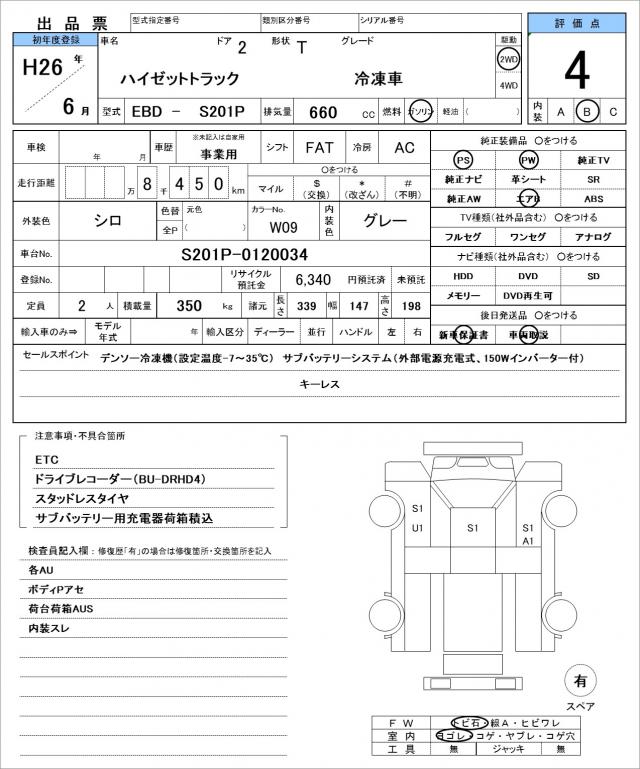 出品票
型式指定番号 類別区分番号 シリアル番号
評価点
初年度登録
車名 ドア 2 形状 T グレード
駆動
2WD
4WD
H26 年
6 月
ハイゼットトラック 冷凍車
4
型式 EBD － S201P 排気量 660 cc 燃料 ガソリン 軽油 ( )
内装 A B C
車検 年 月 車歴 ※未記入は自家用 事業用 シフト FAT 冷房 AC
純正装備品 〇をつける
PS PW 純正TV
走行距離 万 8 千 4 5 0 km
〇をつける
マイル $ (交換) * (改ざん) # (不明)
純正ナビ 革シート SR
純正AW エアB ABS
外装色 シロ 色替 元色
全P ( )
カラーNo. W09 内装色 グレー
TV種類(社外品含む) 〇をつける
フルセグ ワンセグ アナログ
車台No. S201P-0120034
ナビ種類(社外品含む) 〇をつける
HDD DVD SD
登録No. リサイクル預託金 6,340 円預託済 未預託
メモリー DVD再生可
定員 2 人 積載量 350 kg 諸元 長さ 339 幅 147 高さ 198
後日発送品 〇をつける
輸入車のみ⇒ モデル年式 年 輸入区分 ディーラー 並行 ハンドル 左 右
新車保証書 車両取説
セールスポイント デンソー冷凍機(設定温度-7～35℃) サブバッテリーシステム(外部電源充電式、150Wインバーター付)
キーレス
注意事項・不具合箇所
ETC
ドライブレコーダー(BU-DRHD4)
スタッドレスタイヤ
サブバッテリー用充電器荷箱積込
検査員記入欄：修復歴「有」の場合は修復箇所・交換箇所を記入
各AU
ボディPアセ
荷台荷箱AUS
内装スレ
S1
U1
S1
S1
A1
有
スペア
ＦＷ トビ石・線Ａ・ヒビワレ
室内 ヨゴレ・コゲ・ヤブレ・コゲ穴
工具 無 ジャッキ 無